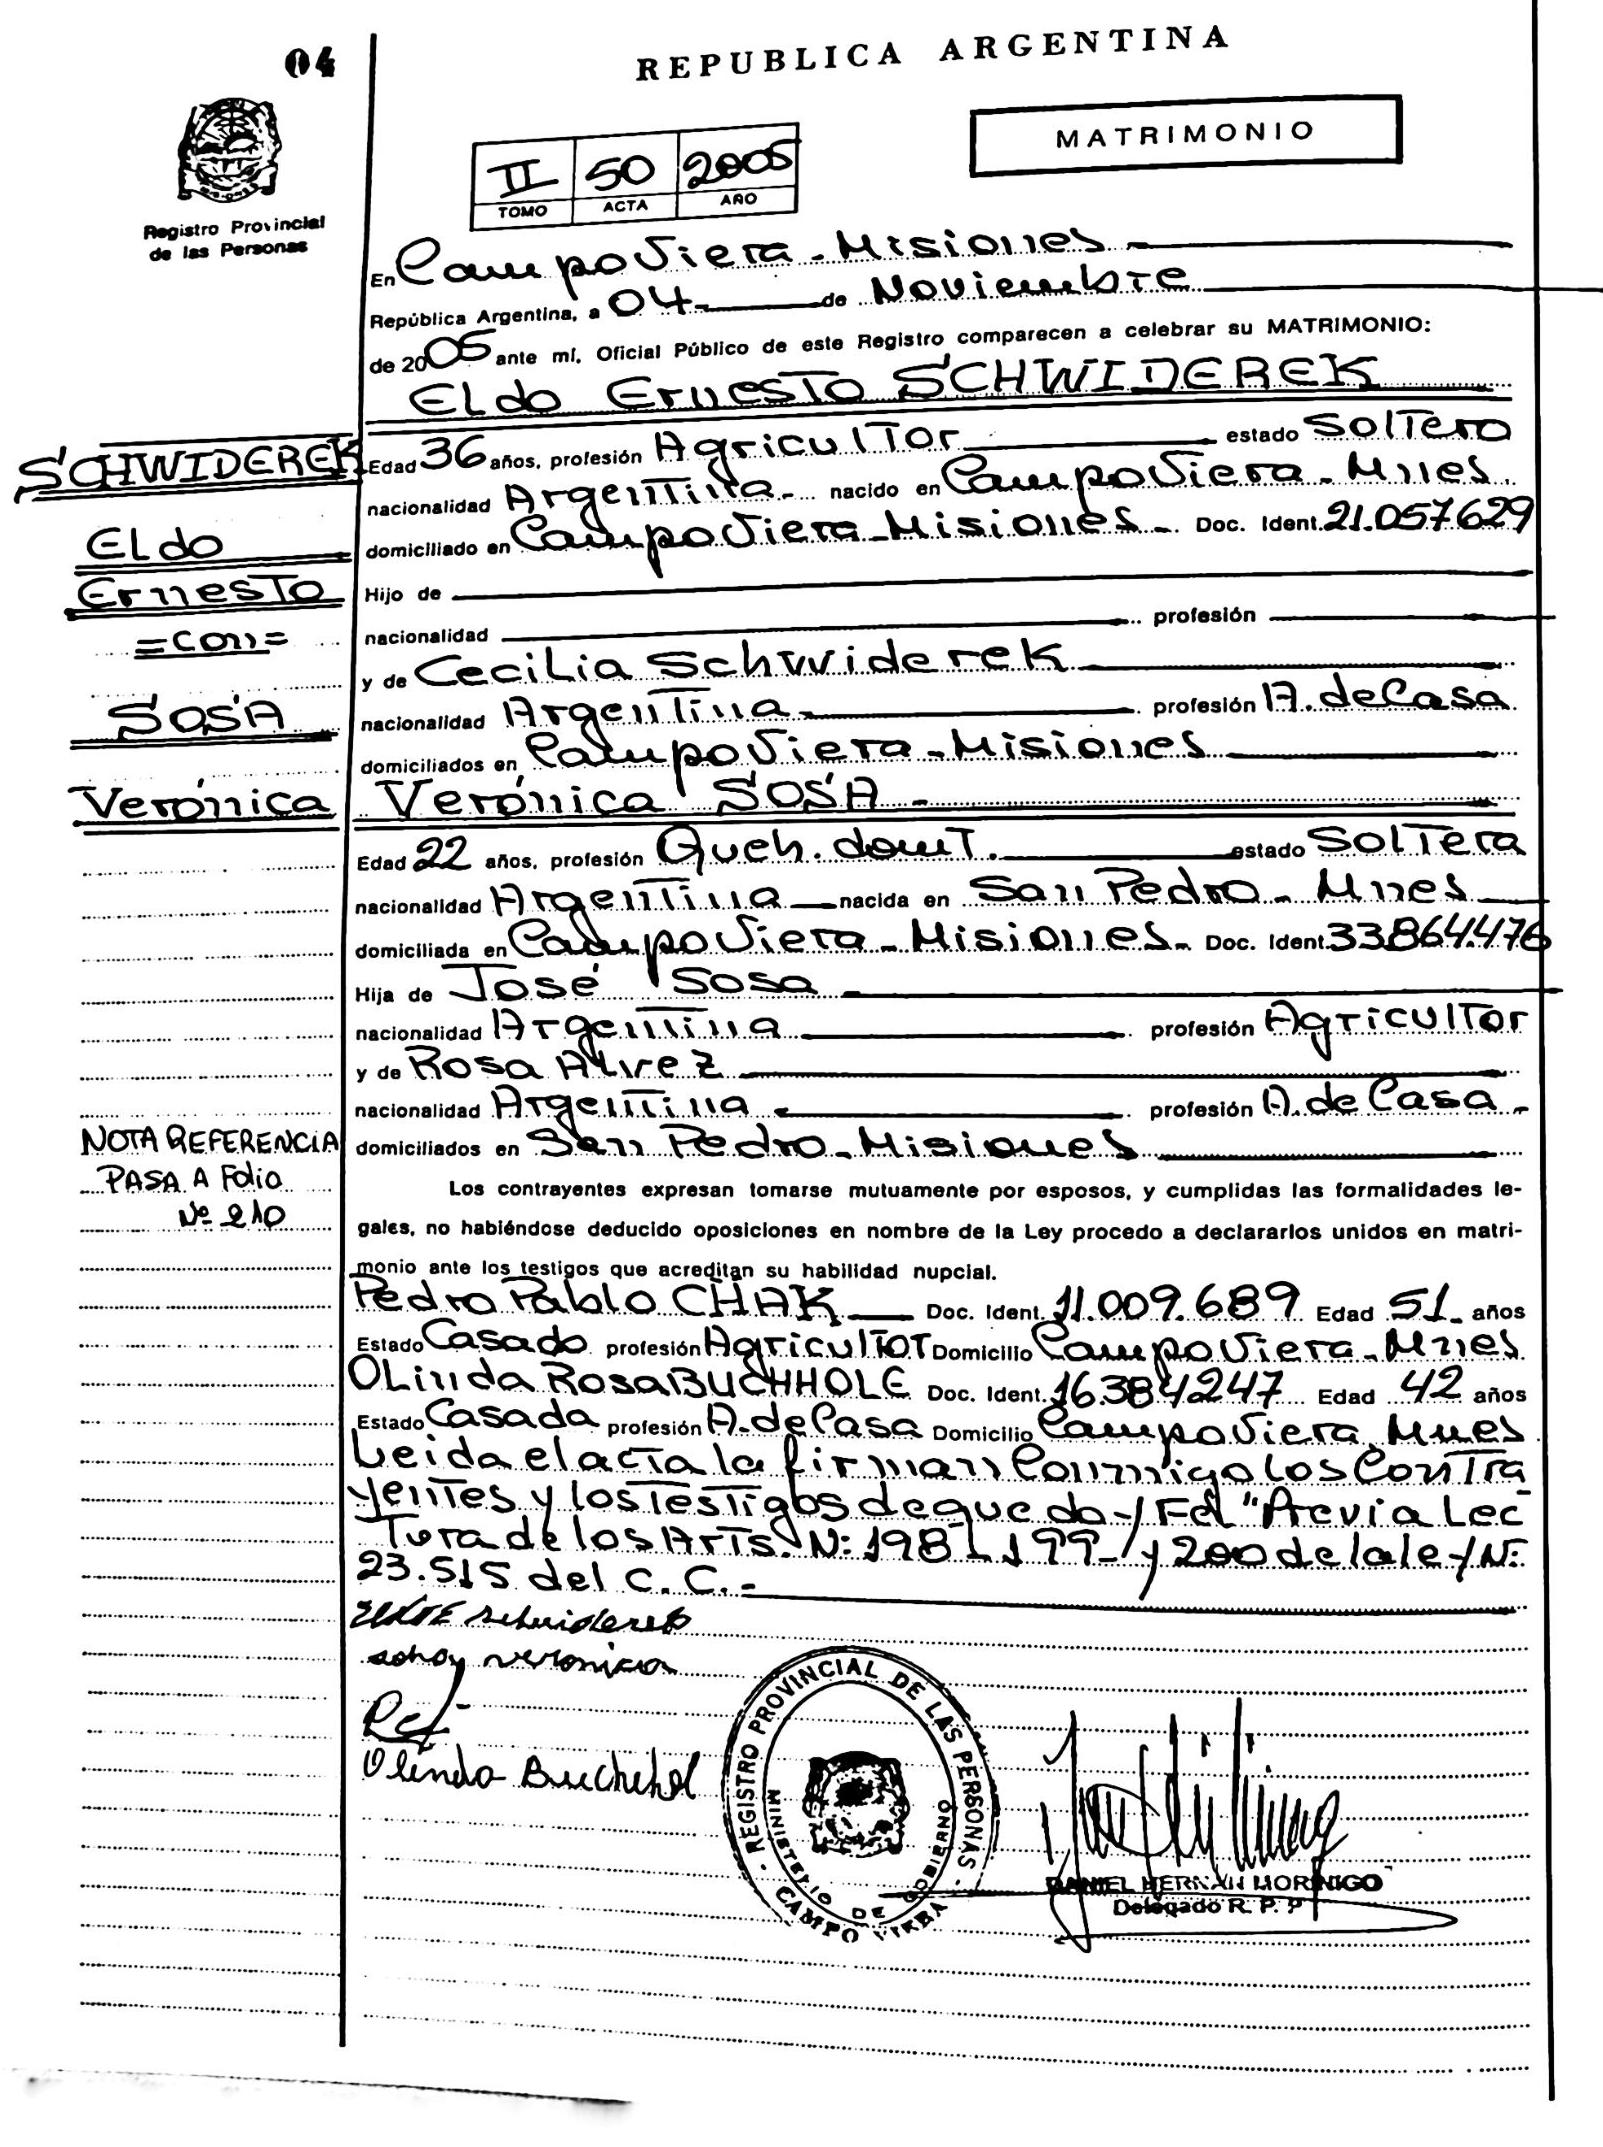 04
REPUBLICA ARGENTINA
MATRIMONIO
II 50 2005
TOMO ACTA AÑO
Registro Provincial
de las Personas
En Campo Viera - Misiones
República Argentina, a 04 de Noviembre
de 2005 ante mí, Oficial Público de este Registro comparecen a celebrar su MATRIMONIO:
Eldo Ernesto SCHWIDEREK
SCHWIDEREK
Eldo
Ernesto
=con=
SOSA
Verónica
Edad 36 años, profesión Agricultor estado Soltero
nacionalidad Argentina - nacido en Campo Viera - Mnes.
domiciliado en Campo Viera - Misiones - Doc. Ident. 21.057629
Hijo de
nacionalidad profesión
y de Cecilia Schwiderek
nacionalidad Argentina - profesión A. de Casa
domiciliados en Campo Viera - Misiones
Verónica SOSA -
Edad 22 años, profesión Queh. domt. estado Soltera
nacionalidad Argentina nacida en San Pedro - Mnes
domiciliada en Campo Viera - Misiones - Doc. Ident. 33.864.476
Hija de José Sosa
nacionalidad Argentina profesión Agricultor
y de Rosa Alvez
nacionalidad Argentina profesión A. de Casa -
domiciliados en San Pedro - Misiones
NOTA REFERENCIA
PASA A Folio
Nº 210
Los contrayentes expresan tomarse mutuamente por esposos, y cumplidas las formalidades le-
gales, no habiéndose deducido oposiciones en nombre de la Ley procedo a declararlos unidos en matri-
monio ante los testigos que acreditan su habilidad nupcial.
Pedro Pablo CHAK Doc. Ident. 11.009.689 Edad 51 años
Estado Casado profesión Agricultor Domicilio Campo Viera - Mnes
Olinda Rosa BUCHHOLE Doc. Ident. 16.384247 Edad 42 años
Estado Casada profesión A. de Casa Domicilio Campo Viera. Mnes
Leida el acta la firman Conmigo los Contra
yentes y los Testigos de que doy Fe "Previa Lec
Tura de los Arts. N: 198 - 199 - y 200 de la ley N:
23.515 del C. C. -
Schwiderek
sosa veronica
Olinda Buchhol
REGISTRO PROVINCIAL DE LAS PERSONAS
MINISTERIO DE GOBIERNO
CAMPO VIERA
DANIEL HERNAN MORINIGO
Delegado R. P. P